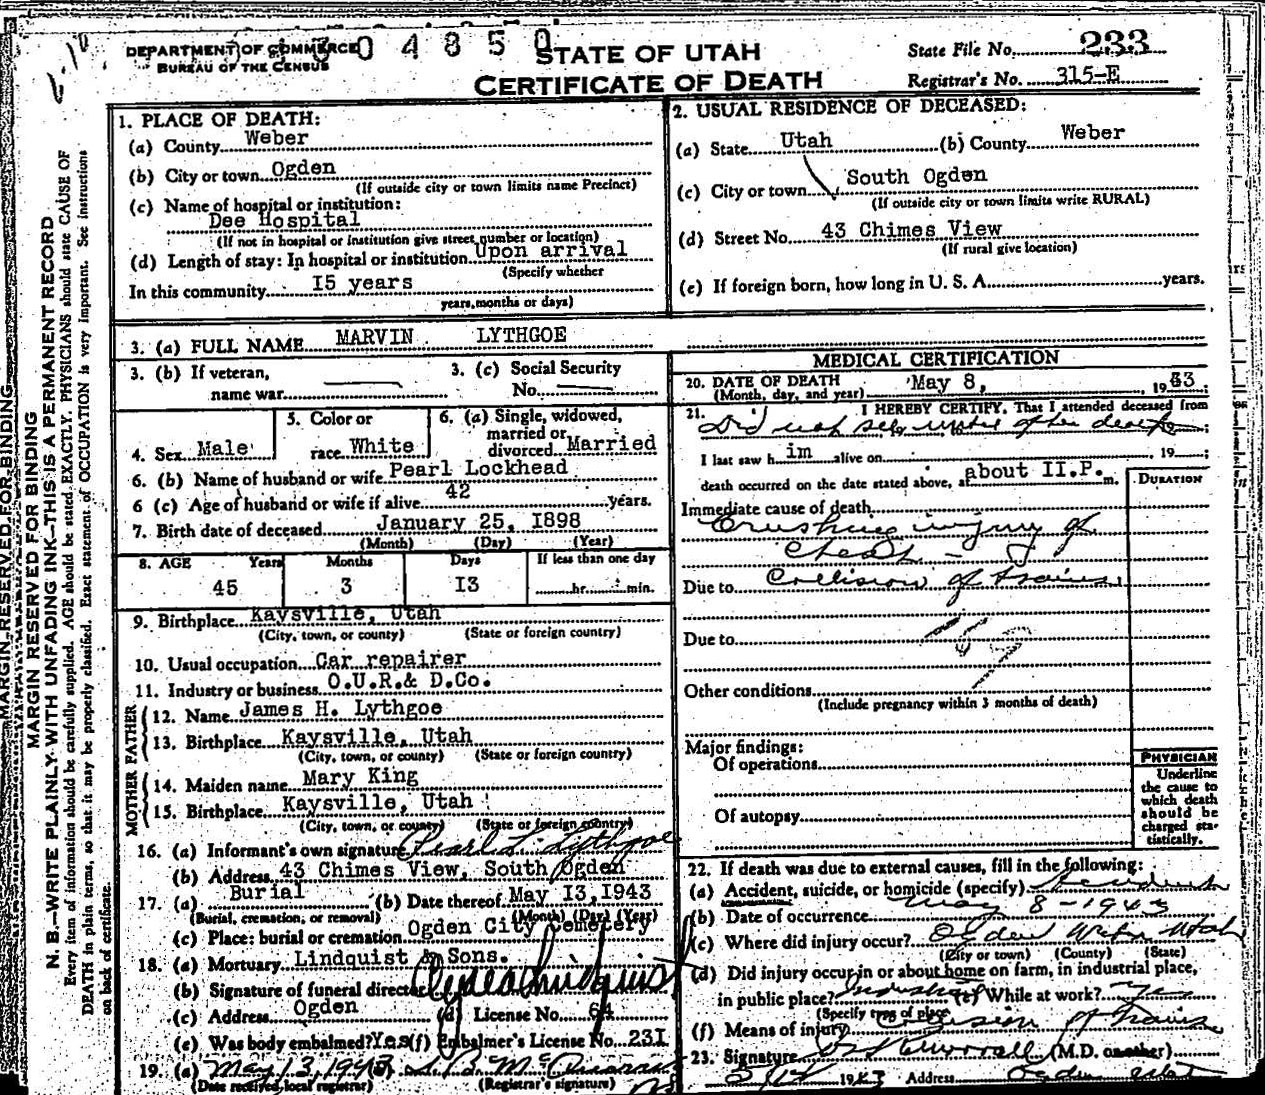 DEPARTMENT OF COMMERCE
BUREAU OF THE CENSUS
304850
STATE OF UTAH
CERTIFICATE OF DEATH
State File No. 233
Registrar's No. 315-E
MARGIN RESERVED FOR BINDING
N. B.—WRITE PLAINLY WITH UNFADING INK—THIS IS A PERMANENT RECORD
Every item of information should be carefully supplied. AGE should be stated EXACTLY. PHYSICIANS should state CAUSE OF
DEATH in plain terms, so that it may be properly classified. Exact statement of OCCUPATION is very important. See instructions
on back of certificate.
1. PLACE OF DEATH:
(a) County Weber
(b) City or town Ogden
(If outside city or town limits name Precinct)
(c) Name of hospital or institution:
Dee Hospital
(If not in hospital or institution give street number or location)
(d) Length of stay: In hospital or institution Upon arrival
(Specify whether
In this community I5 years
years, months or days)
2. USUAL RESIDENCE OF DECEASED:
(a) State Utah (b) County Weber
(c) City or town South Ogden
(If outside city or town limits write RURAL)
(d) Street No. 43 Chimes View
(If rural give location)
(e) If foreign born, how long in U. S. A. years.
3. (a) FULL NAME MARVIN LYTHGOE
3. (b) If veteran, name war
3. (c) Social Security No.
4. Sex Male
5. Color or race White
6. (a) Single, widowed, married or divorced Married
6. (b) Name of husband or wife Pearl Lockhead
6 (c) Age of husband or wife if alive 42 years.
7. Birth date of deceased January 25, I898
(Month) (Day) (Year)
8. AGE Years Months Days If less than one day
45 3 I3 hr. min.
9. Birthplace Kaysville, Utah
(City, town, or county) (State or foreign country)
10. Usual occupation Car repairer
11. Industry or business O.U.R.& D.Co.
FATHER
12. Name James H. Lythgoe
13. Birthplace Kaysville, Utah
(City, town, or county) (State or foreign country)
MOTHER
14. Maiden name Mary King
15. Birthplace Kaysville, Utah
(City, town, or county) (State or foreign country)
16. (a) Informant's own signature Pearl L. Lythgoe
(b) Address 43 Chimes View, South Ogden
17. (a) Burial (b) Date thereof May I3, I943
(Burial, cremation, or removal) (Month) (Day) (Year)
(c) Place: burial or cremation Ogden City Cemetery
18. (a) Mortuary Lindquist & Sons.
(b) Signature of funeral director Clyde Lindquist
(c) Address Ogden (d) License No. 64
(e) Was body embalmed? Yes (f) Embalmer's License No. 23I
19. (a) May 13, 1943
(Date received local registrar) (Registrar's signature)
MEDICAL CERTIFICATION
20. DATE OF DEATH May 8, 1943;
(Month, day, and year)
21. I HEREBY CERTIFY, That I attended deceased from
Did not see until after death
I last saw him alive on , 19 ;
death occurred on the date stated above, at about II.P. m.
DURATION
Immediate cause of death
Crushing injury of
chest
Due to Collision of trains
Due to
169
Other conditions
(Include pregnancy within 3 months of death)
Major findings:
Of operations
Of autopsy
PHYSICIAN
Underline
the cause to
which death
should be
charged sta-
tistically.
22. If death was due to external causes, fill in the following:
(a) Accident, suicide, or homicide (specify) Accident
(b) Date of occurrence May 8-1943
(c) Where did injury occur? Ogden Weber Utah
(City or town) (County) (State)
(d) Did injury occur in or about home on farm, in industrial place,
in public place? Industrial (e) While at work? Yes
(Specify type of place)
(f) Means of injury Collision of trains
23. Signature (M.D. or other)
1943 Address Ogden Utah